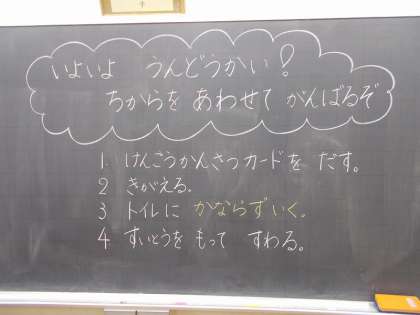 いよいよ うんどうかい!
ちからを あわせて がんばるぞ
1 けんこうかんさつカードを だす。
2 きがえる。
3 トイレに かならず いく。
4 すいとうを もって すわる。